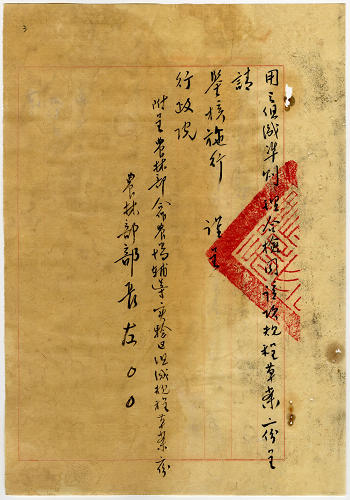 用之組織準則理合檢同該項規程草案二份呈
請
鑒核施行 謹呈
行政院
附呈農林部合作農場輔導實驗區組織規程草案二份
農林部部長左〇〇
3